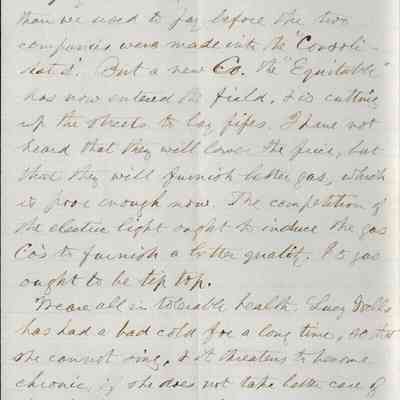 than we used to pay before the two
companies were made into the "Consoli-
dat'd'. But a new Co. the "Equitable"
has now entered the field, & is cutting
up the streets to lay pipes. I have not
heard that they will lower the price, but
that they will furnish better gas, which
is poor enough now. The competition of
the electric light ought to induce the gas
Co's to furnish a better quality. gas
ought to be tip top.
We are all in tolerable health. Lucy
has had a bad cold for a long time, so that
she cannot sing, & it threatens to become
chronic, if she does not take better care of